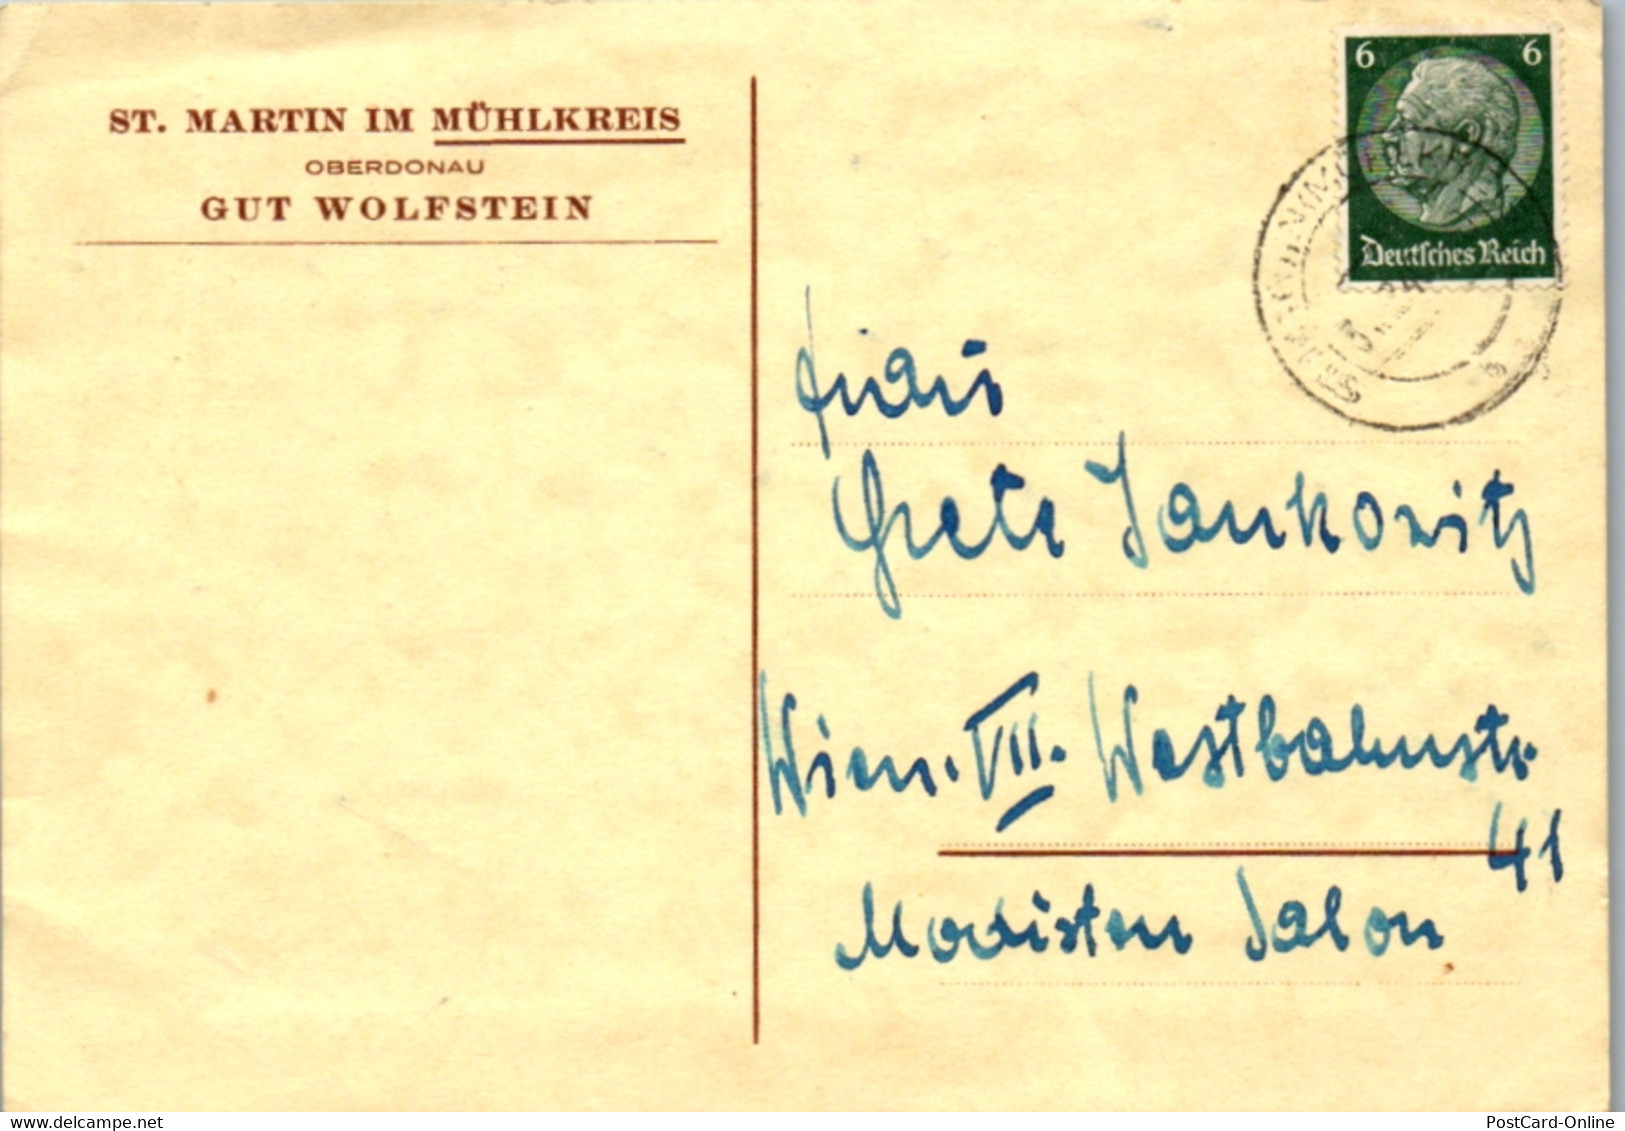 ST. MARTIN IM MÜHLKREIS
OBERDONAU
GUT WOLFSTEIN
6 6
Deutsches Reich
Frau
Grete Jankowitz
Wien. VII. Westbahnstr.
41
Modisten Salon
PostCard-Online